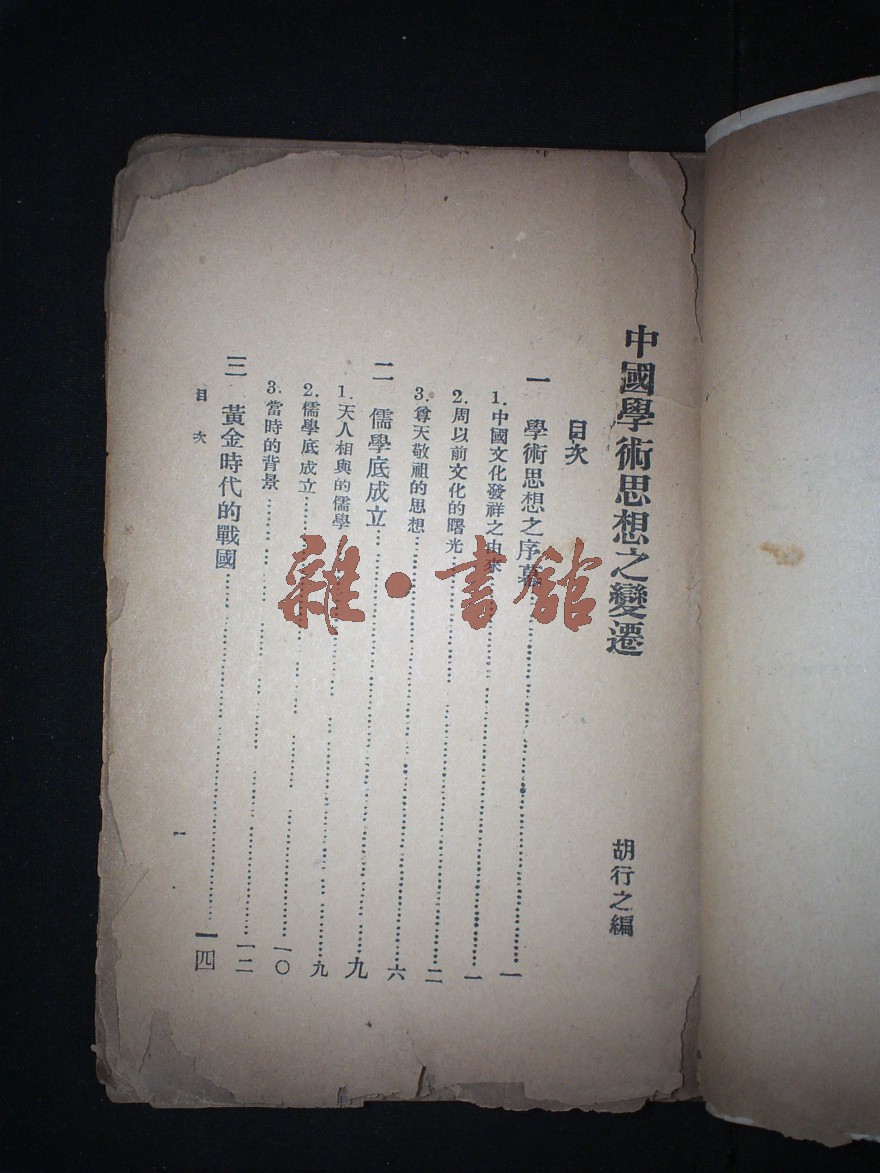 中國學術思想之變遷
胡行之編
目次
一 學術思想之序幕 一
1. 中國文化發祥之由來 一
2. 周以前文化的曙光 二
3. 尊天敬祖的思想 六
二 儒學底成立 九
1. 天人相與的儒學 九
2. 儒學底成立 一〇
3. 當時的背景 一二
三 黃金時代的戰國 一四
目次
一
雜·書館